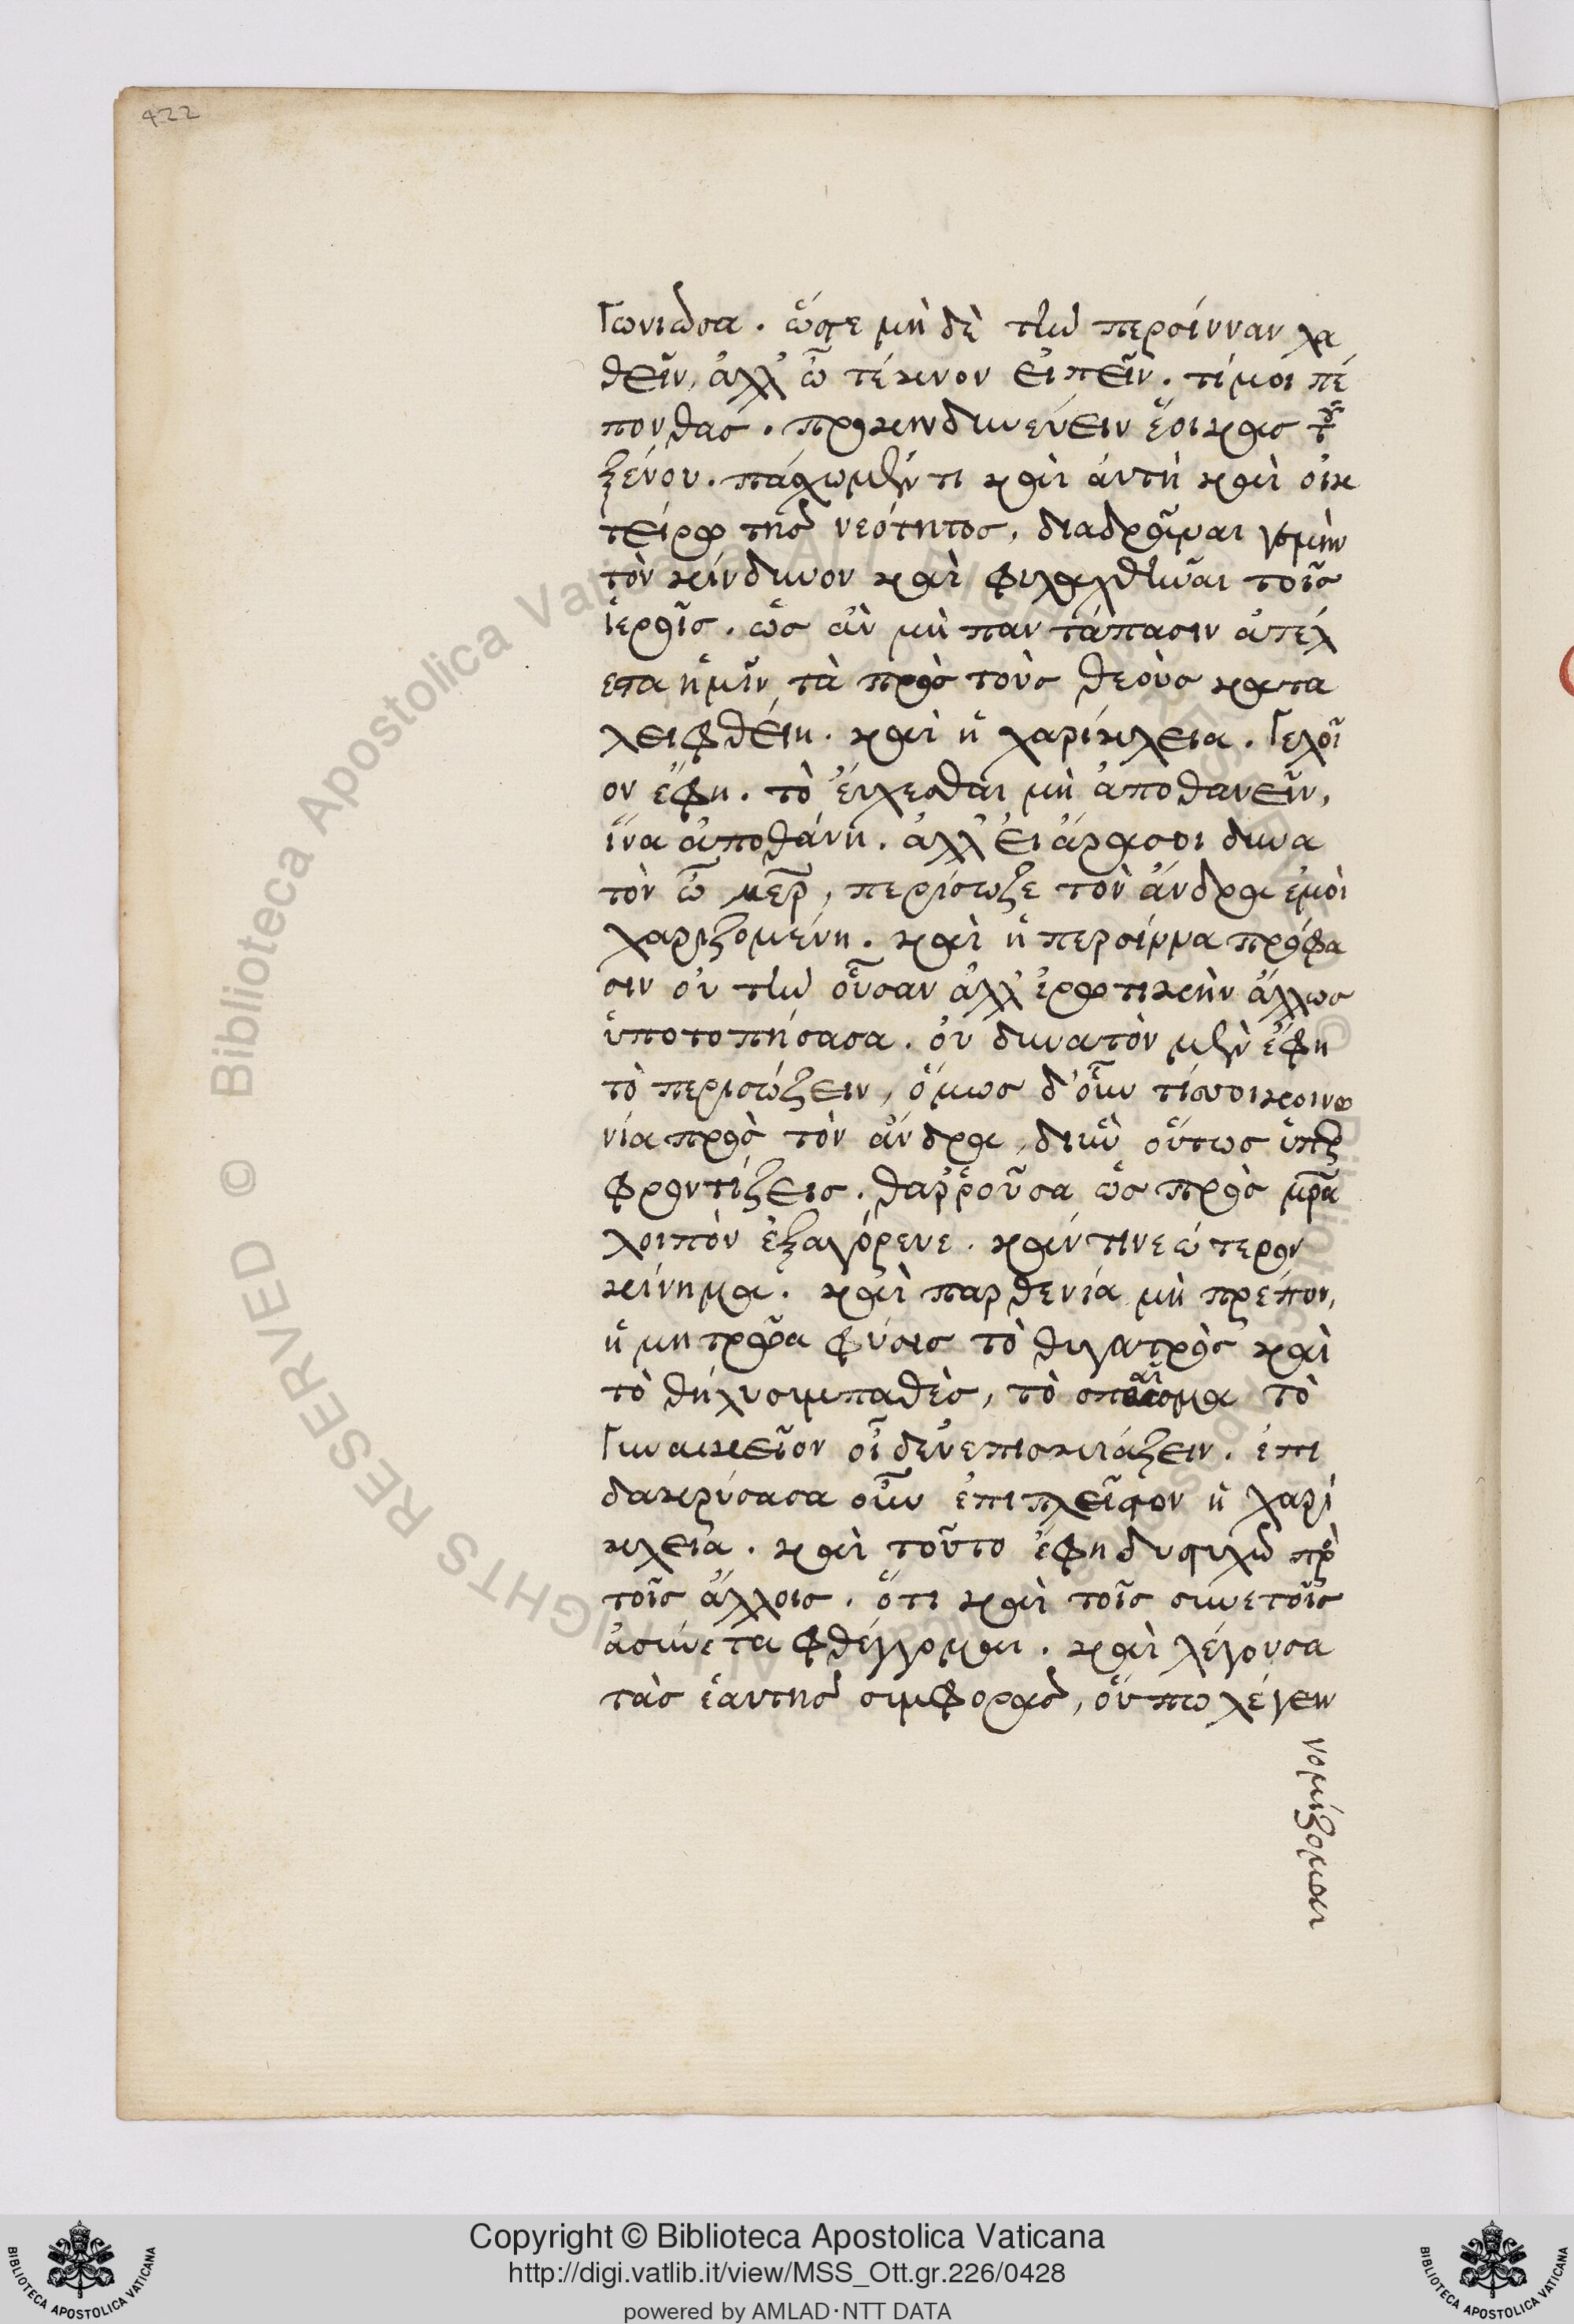 422
γωνιῶσα. ὥστε μὴ δὲ τὴν περσίνναν λα
θεῖν, ἀλλ' ὦ τέκνον εἰπεῖν. τί μοι πέ
πονθας. προκινδυνεύειν ἔοικας τοῦ
ξένου. πάσχω μέν τι καὶ ἀυτὴ καὶ οἰκ
τείρω τῆς νεότητος, διαδρᾶναι γε μὴν
τὸν κίνδυνον καὶ φυλαχθῆναι τοῖς
ἱεροῖς. ὡς ἂν μὴ παντάπασιν ἀτέλ
εστα ἡμῖν τὰ πρὸς τοὺς θεοὺς κατα
λειφθείη. καὶ ἡ χαρίκλεια. γελοῖ
ον ἔφη. τὸ ἔυχεσθαι μὴ ἀποθανεῖν,
ἵνα ἀποθάνη. ἀλλ' ἐι ἄρα σοι δυνα
τὸν ὦ μῆτερ, περίσωζε τὸν ἄνδρα ἐμοὶ
χαριζομένη. καὶ ἡ περσίννα πρόφα
σιν οὐ τὴν οὖσαν ἀλλ' ἐρωτικὴν ἄλλως
ὑποτοπήσασα. οὐ δυνατὸν μὲν ἔφη
τὸ περισώζειν, ὅμως δ' οὖν τίς σοι κοινω
νία πρὸς τὸν ἄνδρα, δι' ἣν οὕτως ὑπερ
φροντίζεις. θαῤῥοῦσα ὡς πρὸς μητέρα
λοιπὸν ἐξαγόρευε. κάν τι νεώτερον
κίνημα. κἂι παρθενία μὴ πρέπον,
ἡ μητρῶα φύσις τὸ θυγατρὸς καὶ
τὸ θῆλυ συμπαθὲς, τὸ πταῖσμα τὸ
γυναικεῖον οἶδεν ἐπισκιάζειν. ἐπι
δακρύσασα οὖν ἐπιπλεῖστον ἡ χαρί
κλεια. καὶ τοῦτο ἔφη δυστυχῶ πρὸς
τοῖς ἄλλοις. ὅτι καὶ τοῖς συνετοῖς
ἀσύνετα φθέγγομαι. καὶ λέγουσα
τὰς ἑαυτῆς συμφορὰς, οὔπω λέγειν
νομίζομαι
Copyright © Biblioteca Apostolica Vaticana
http://digi.vatlib.it/view/MSS_Ott.gr.226/0428
powered by AMLAD·NTT DATA